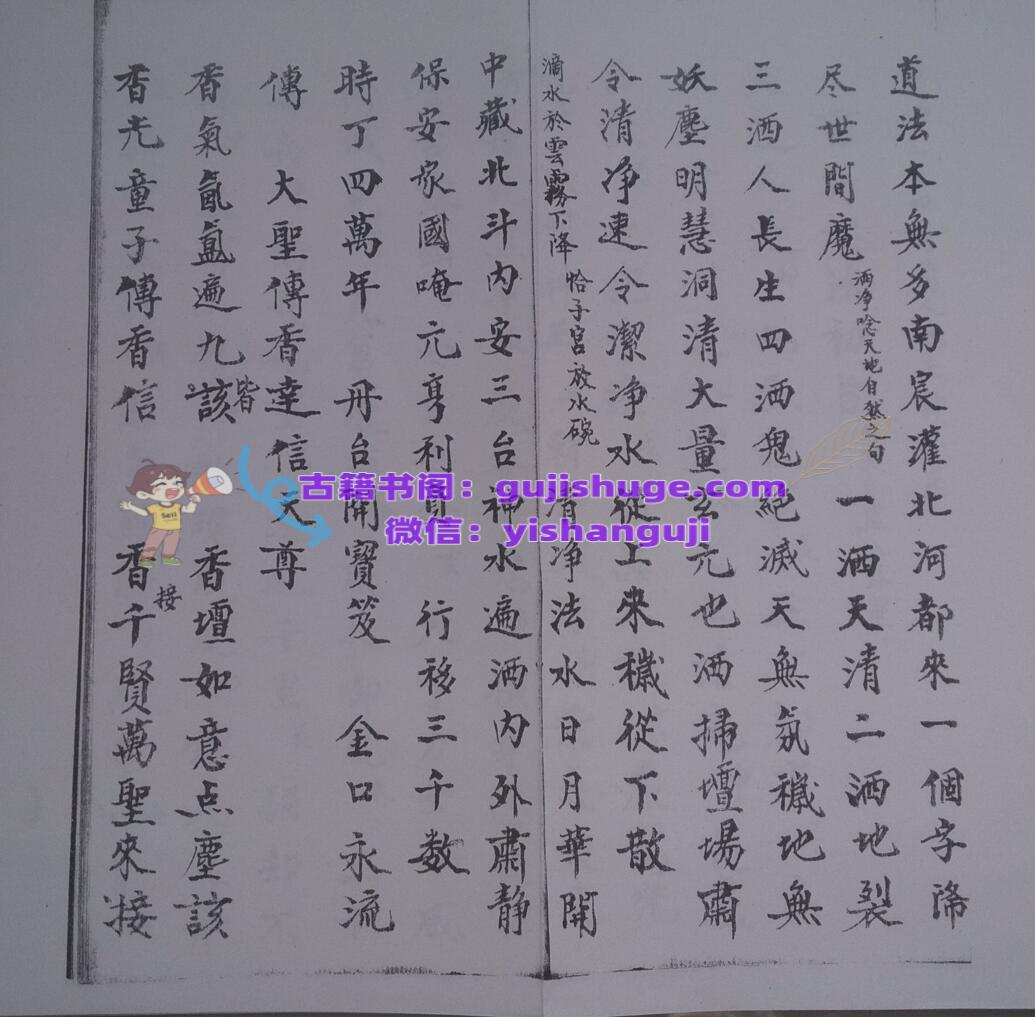 道法本無多南宸灌北河都來一個字啼
尽世間魔 洒净唸天地自然之句 一洒天清二洒地裂
三洒人長生四洒鬼絕滅天無氛穢地無
妖塵明慧洞清大量玄元也洒掃壇場肅
令清净速令潔净水從上來穢從下散
滴水於雲霧下降 恰子宮放水碗 清净法水日月華開
中藏北斗内安三台神水遍洒内外肅静
保安家國唵元亨利貞 行移三千数
時丁四萬年 丹台開寶笈 金口永流
傳 大聖傳香達信天尊
香氣氤氲遍九該皆 香壇如意点塵該
香光童子傳香信 香千接賢萬聖來接
古籍书阁：gujishuge.com
微信：yishanguji